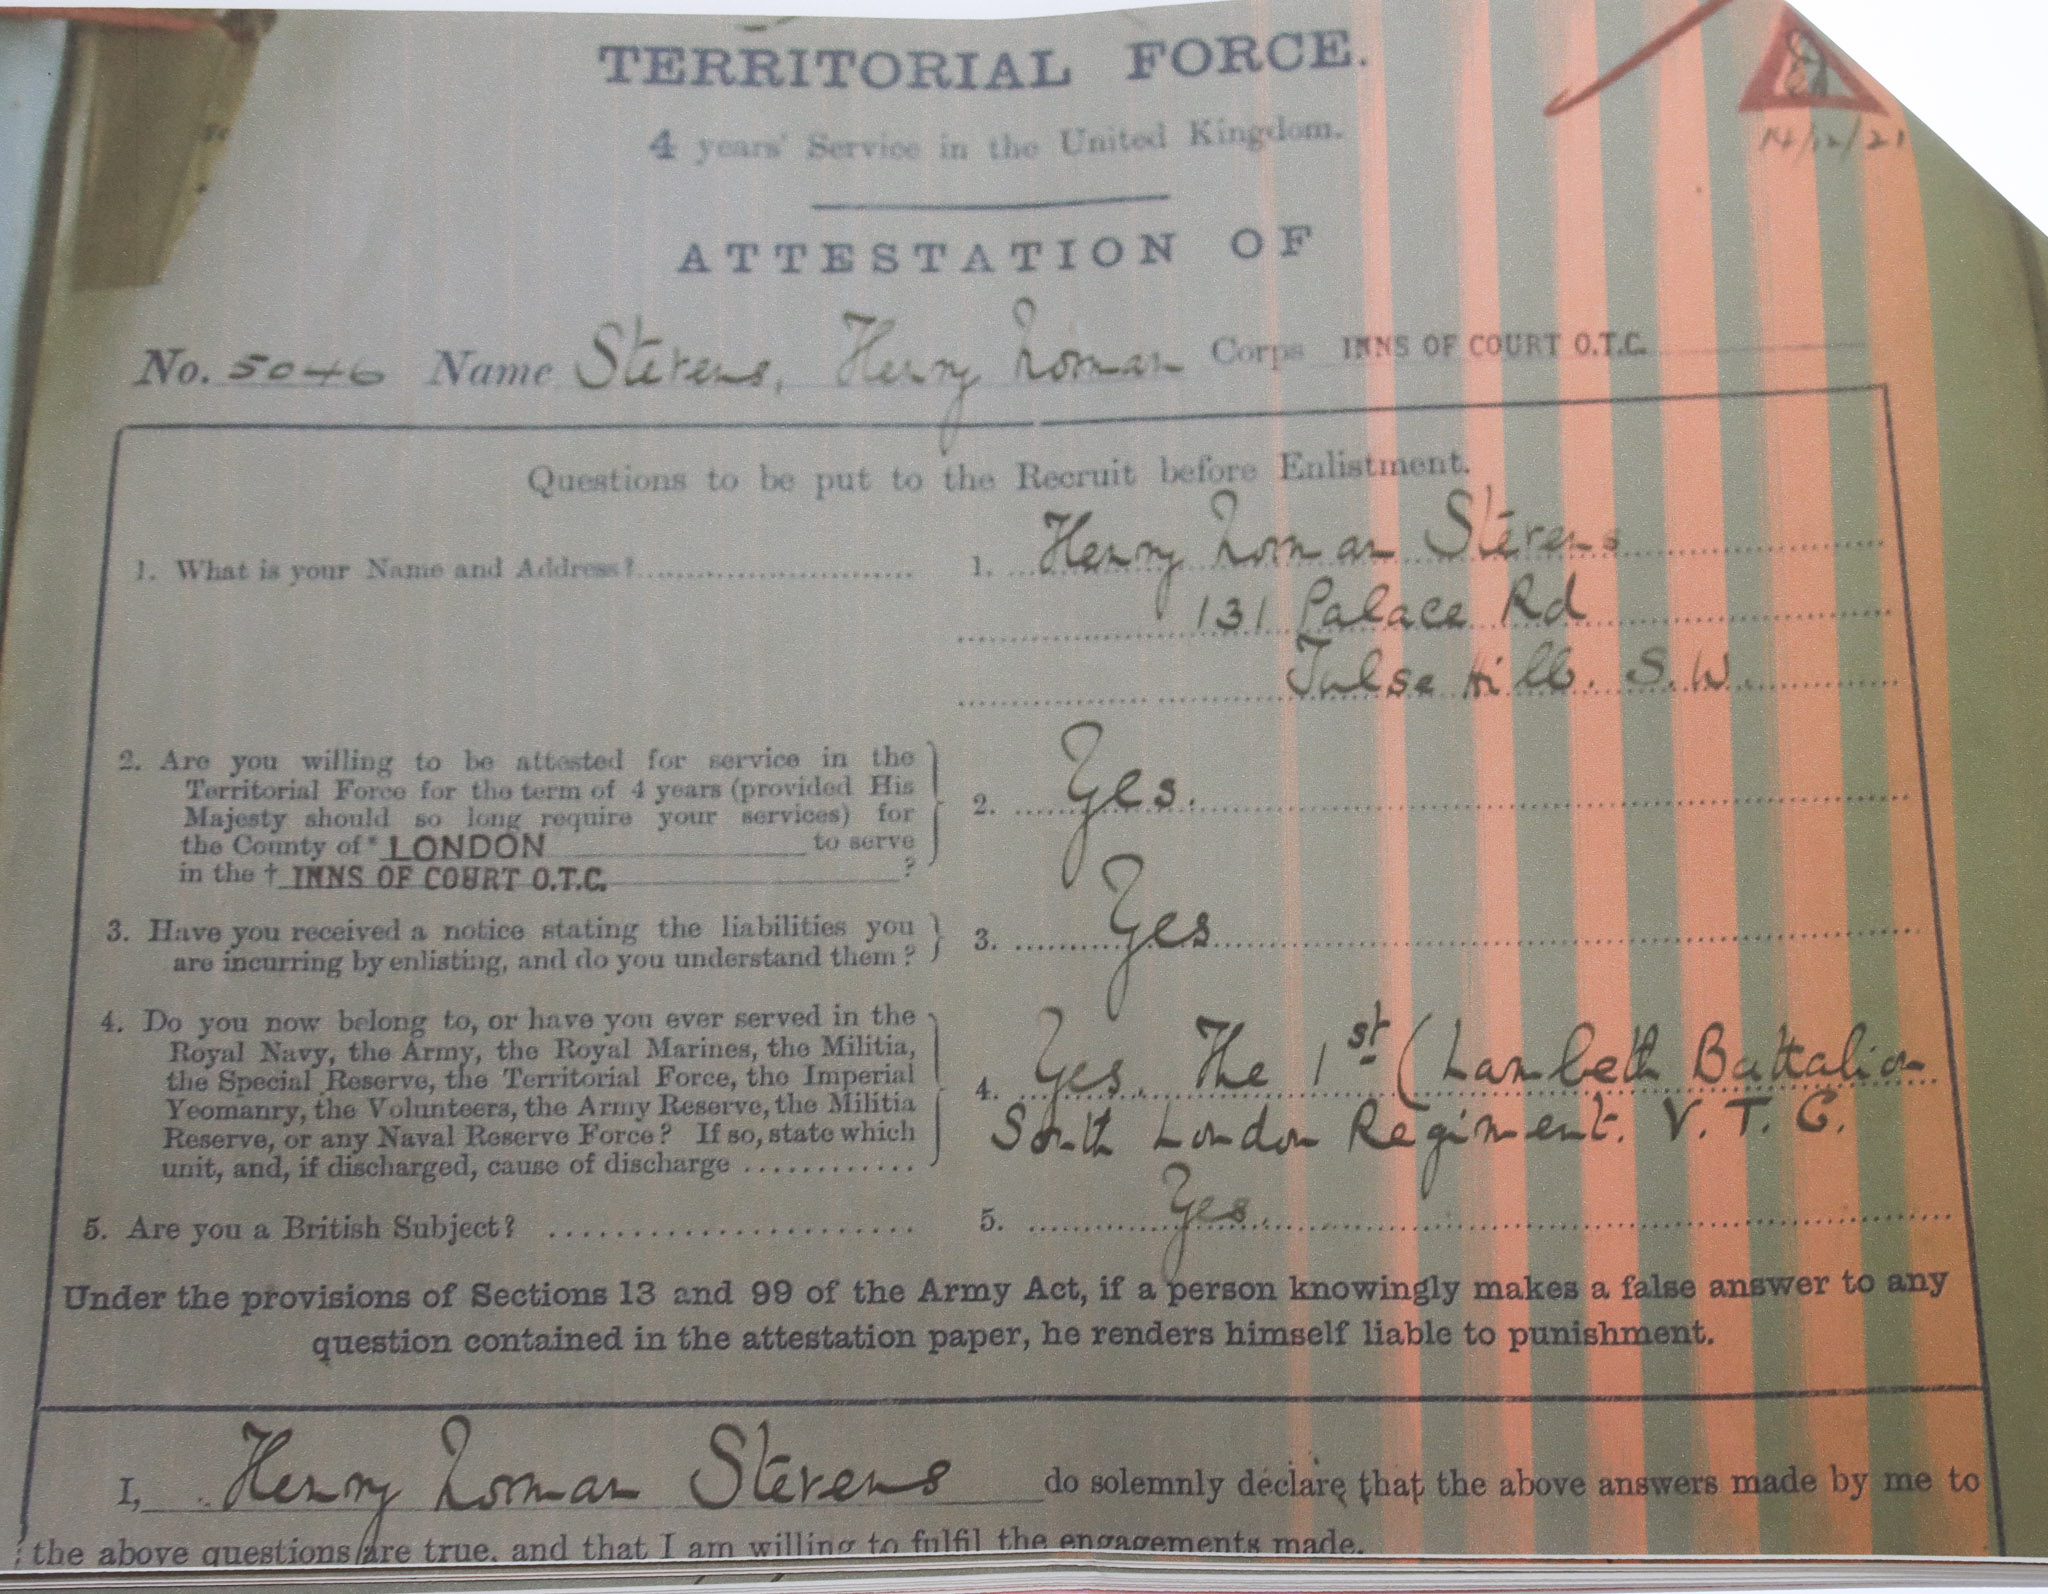 TERRITORIAL FORCE.
14/12/21
4 years' Service in the United Kingdom.
ATTESTATION OF
No. 5046 Name Stevens, Henry Norman Corps INNS OF COURT O.T.C.
Questions to be put to the Recruit before Enlistment.
1. What is your Name and Address? 1. Henry Norman Stevens
131 Palace Rd
Tulse Hill. S.W.
2. Are you willing to be attested for service in the
Territorial Force for the term of 4 years (provided His
Majesty should so long require your services) for
the County of * LONDON to serve
in the † INNS OF COURT O.T.C. ?
2. Yes.
3. Have you received a notice stating the liabilities you
are incurring by enlisting, and do you understand them?
3. Yes
4. Do you now belong to, or have you ever served in the
Royal Navy, the Army, the Royal Marines, the Militia,
the Special Reserve, the Territorial Force, the Imperial
Yeomanry, the Volunteers, the Army Reserve, the Militia
Reserve, or any Naval Reserve Force? If so, state which
unit, and, if discharged, cause of discharge ............
4. Yes. The 1st (Lambeth Battalion
South London Regiment. V.T.C.
5. Are you a British Subject? .................... 5. Yes.
Under the provisions of Sections 13 and 99 of the Army Act, if a person knowingly makes a false answer to any
question contained in the attestation paper, he renders himself liable to punishment.
I, Henry Norman Stevens do solemnly declare that the above answers made by me to
the above questions are true, and that I am willing to fulfil the engagements made.